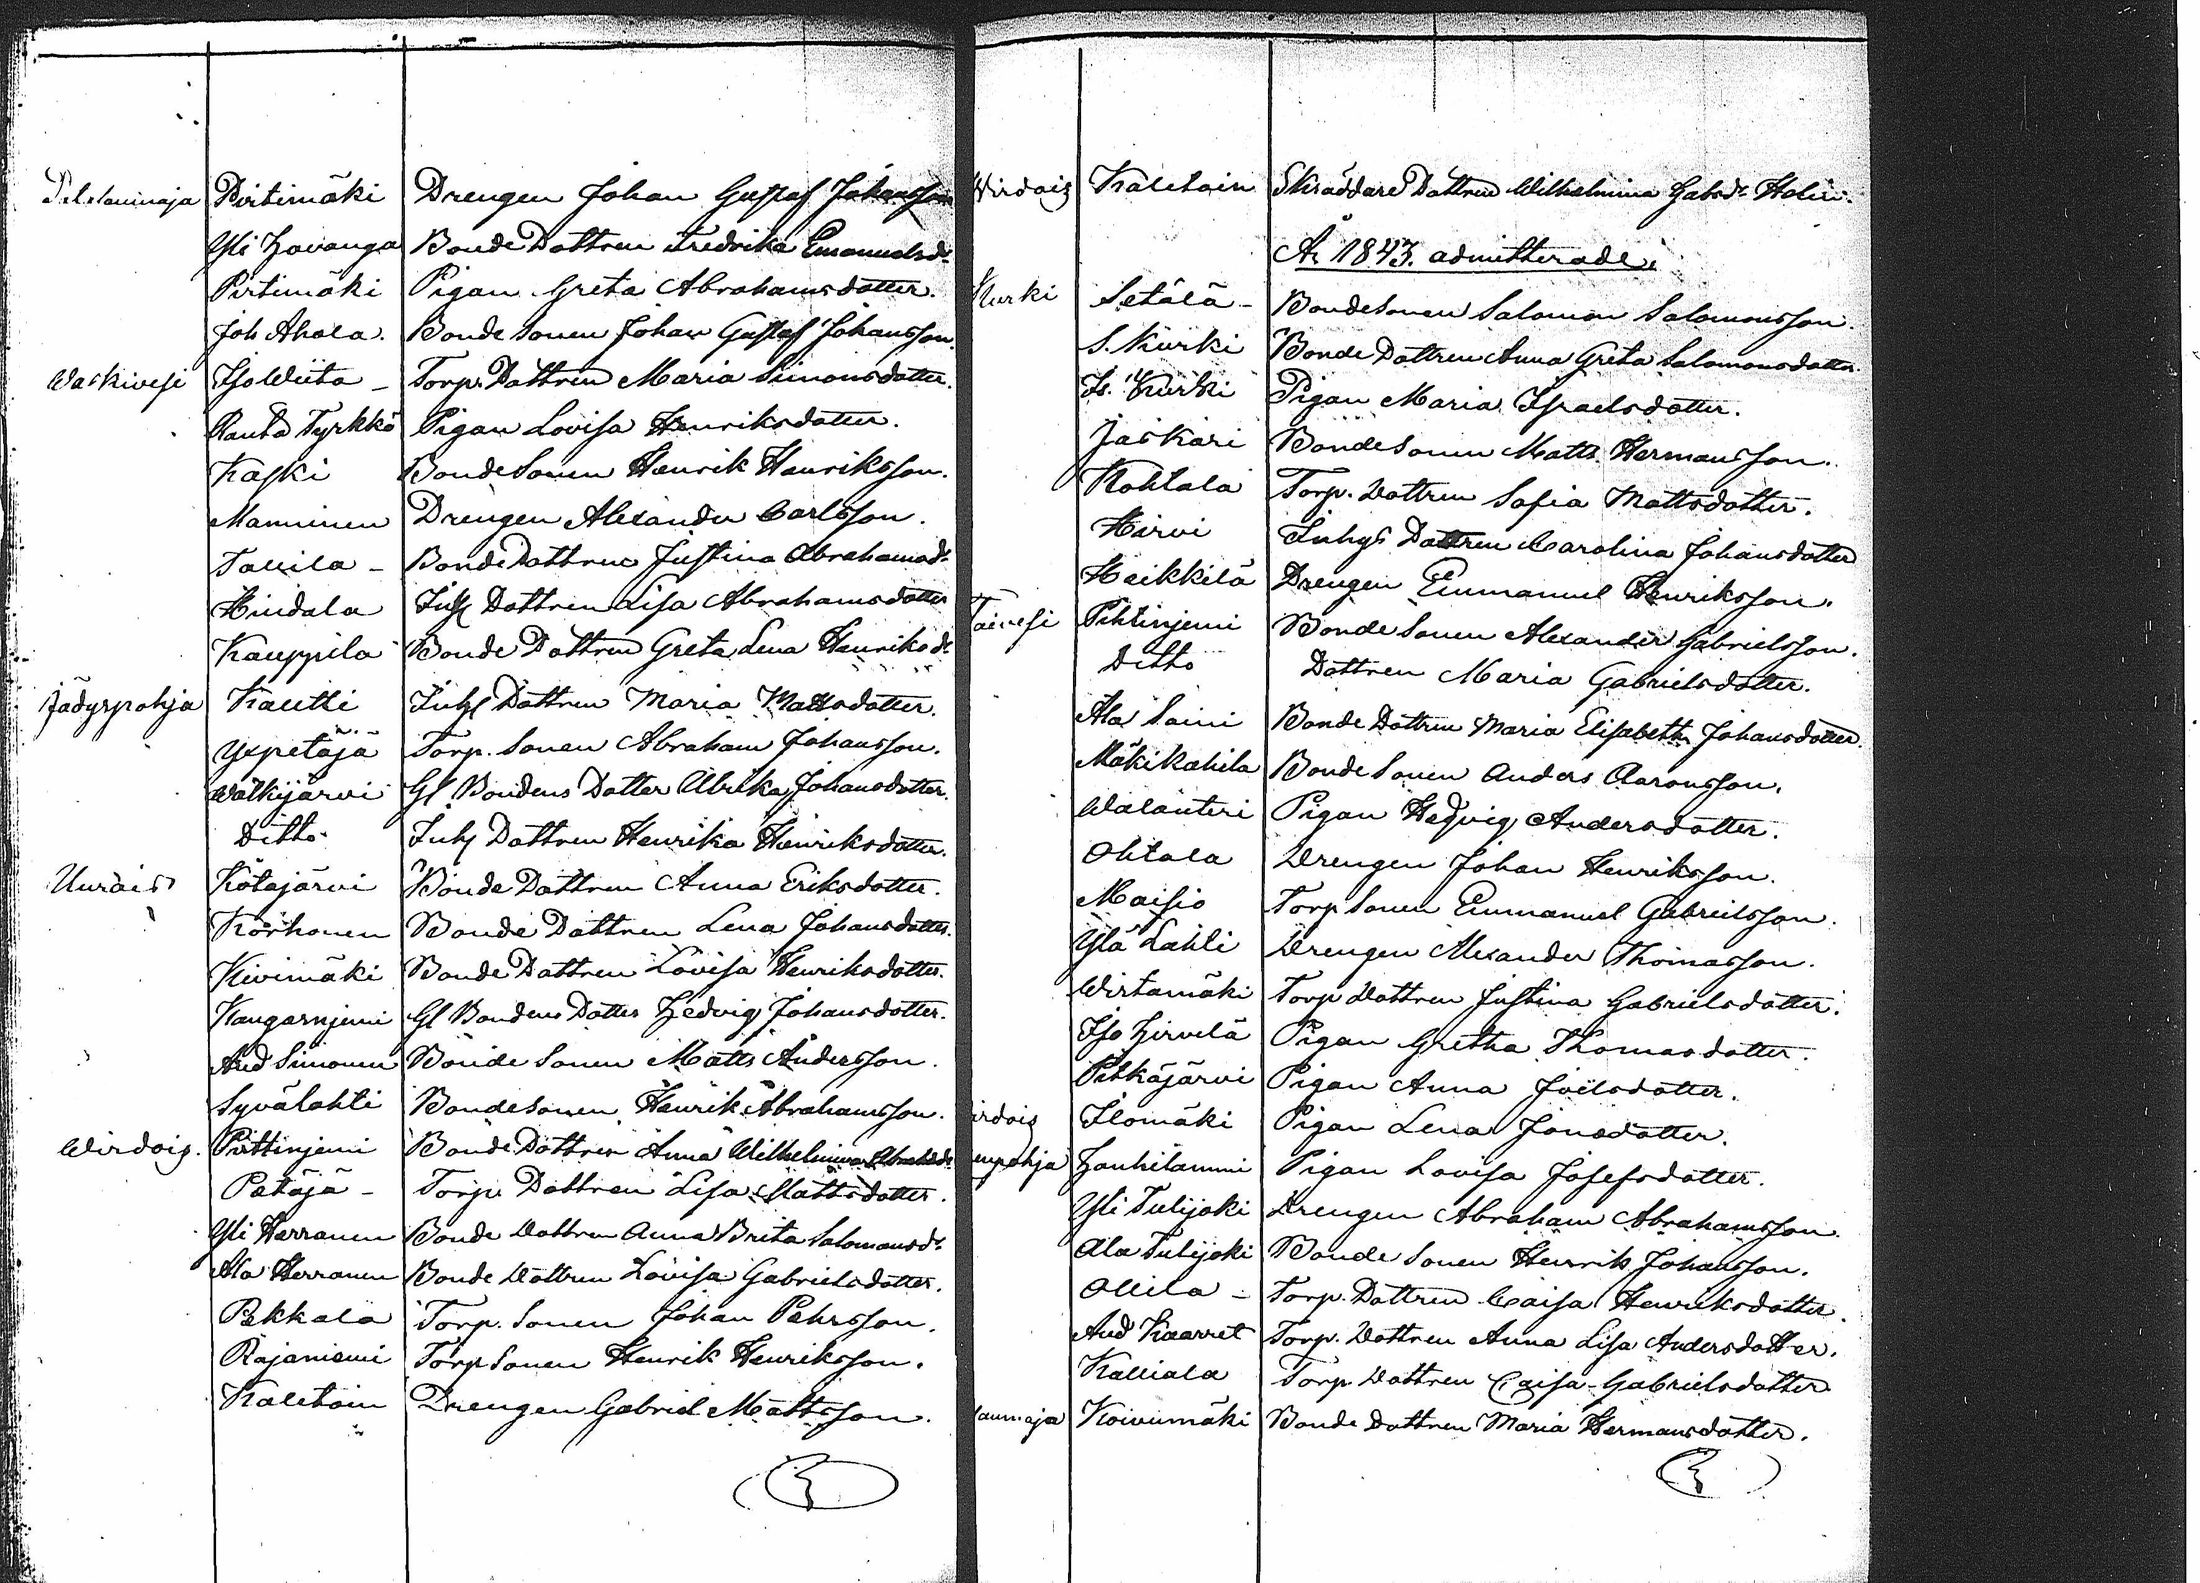 Pirtimäki Drengen Johan Gustaf Johansson
Yli Havanga Bonde Dottren Fredrika Emanuelsdr
Pirtimäki Pigan Greta Abrahamsdotter.
Joh Ahola. Bonde Sonen Johan Gustaf Johansson.
Waskivesi Iso Wiita - Torp. Dottren Maria Simonsdotter.
Ranta Tyrkkö Pigan Lovisa Henriksdotter.
Kaski Bonde Sonen Henrik Henriksson.
Manninen Drengen Alexander Carlsson.
Tallila - Bonde Dottren Justina Abrahamsdr
Hindala Inhs Dottren Lisa Abrahamsdotter
Kauppila Bonde Dottren Greta Lena Henriksdr
Jädyspohja Kautti Inhs Dottren Maria Mattsdotter.
Yxpetäjä Torp. Sonen Abraham Johansson.
Wälkijärvi Gl Bondens Dotter Ulrika Johansdotter.
Ditto Inhs Dottren Henrika Henriksdotter.
Uurais Kötajärvi Bonde Dottren Anna Eriksdotter.
Korhonen Bonde Dottren Lena Johansdotter.
Kivimäki Bonde Dottren Lovisa Henriksdotter.
Kangasnjemi Gl Bondens Dotter Hedvig Johansdotter.
And Simonen Bonde Sonen Matts Andersson.
Syvälahti Bonde Sonen Henrik Abrahamsson.
Wirdois. Pöttinjemi Bonde Dottren Anna Wilhelmina
Petäjä - Torp. Dottren Lisa Mattsdotter.
Yli Herranen Bonde Dottren Anna Brita Salomonsdr
Ala Herranen Bonde Dottren Lovisa Gabrielsdotter.
Pekkala Torp. Sonen Johan Pehrsson.
Rajaniemi Torp Sonen Henrik Henriksson.
Kaletoin Drengen Gabriel Mattsson.
Wirdois Kaletoin Skräddare Dottren Wilhelmina Gabsdr Holin.
År 1843. admitterade,
Kurki Setälä - Bonde Sonen Salomon Salomonsson.
S. Kurki Bonde Dottren Anna Greta Salomonsdotter.
Is. Kurki Pigan Maria Israelsdotter.
Jäskäri Bonde Sonen Matts Hermansson.
Kohtala Torp. Dottren Sofia Mattsdotter.
Hirvi Inhys Dottren Carolina Johansdotter
Heikkilä Drengen Emmanuel Henriksson.
Pihtinjemi Bonde Sonen Alexander Gabrielsson.
Ditto Dottren Maria Gabrielsdotter.
Ala Saini Bonde Dottren Maria Elisabeth Johansdotter.
Mäkikahila Bonde Sonen Anders Aaronsson.
Walanteri Pigan Hedvig Andersdotter.
Ohtala Drengen Johan Henriksson.
Maisio Torp Sonen Emmanuel Gabrielsson.
Ylä Lahti Drengen Alexander Thomasson.
Wirtamäki Torp Dottren Justina Gabrielsdotter.
Iso Hirvelä Pigan Gretha Thomasdotter.
Pitkäjärvi Pigan Anna Joelsdotter.
irdois Ilomäki Pigan Lena Jonsdotter.
enpohja Hauhilammi Pigan Lovisa Josefsdotter.
Yli Tulijoki Drengen Abraham Abrahamsson.
Ala Tulijoki Bonde Sonen Henrik Johansson.
Ollila - Torp. Dottren Caisa Henriksdotter.
And Kaarret Torp. Dottren Anna Lisa Andersdotter.
Kalliala Torp Dottren Caisa Gabrielsdotter
aumaja Koivumäki Bonde Dottren Maria Hermansdotter.